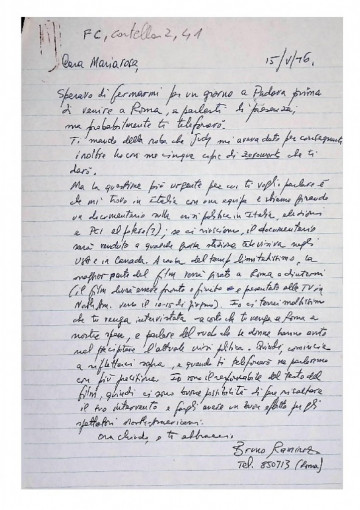 FC, cartella 2, 41
Cara Mariarosa, 15/V/76.
Speravo di fermarmi per un giorno a Padova prima
di venire a Roma, e parlarti di presenza;
ma probabilmente ti telefonerò.
Ti mando della roba che Judy mi aveva dato per consegnarti
inoltre ho con me cinque copie di Zerowork che ti
darò.
Ma la questione più urgente per cui ti voglio parlare è
che mi trovo in Italia con una equipe e stiamo girando
un documentario sulla crisi politica in Italia, elezioni
e PCI al potere(?); se ci riusciamo, il documentario
sarà venduto a qualche grossa stazione televisiva negli
USA e in Canada. A causa del tempo limitatissimo, la
maggior parte del film sarà girato a Roma e dintorni
(il film dovrà essere pronto e finito e presentato alla TV in
verso il 10-15 di giugno). Io ci terrei moltissimo
che tu venga intervistata che tu venga a Roma a
nostre spese, e parlare del ruolo che le donne hanno avuto
nel precipitare l'attuale crisi politica. Quindi comincia
a rifletterci sopra, e quando ti telefonerò ne parleremo
con più precisione. Io sono il responsabile del testo del
film, quindi ci sono buone possibilità di far risaltare
il tuo intervento e fargli avere un buon effetto sugli
spettatori nord-americani.
Ora chiudo, e ti abbraccio
Bruno Ramirez
Tel. 850713 (Roma)